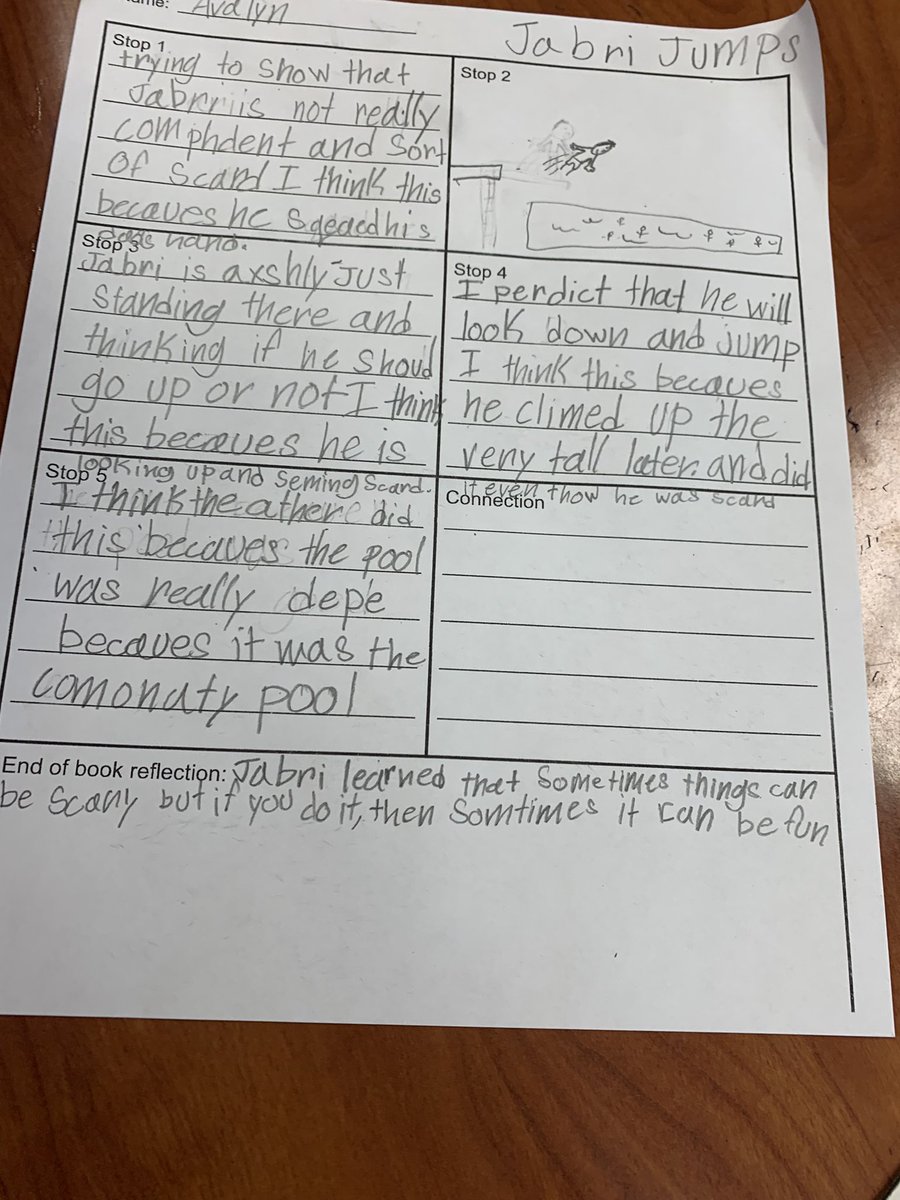 Name: Avalyn
Jabri Jumps
Stop 1
trying to show that
Jabrriis not really
comphdent and sort
of scard I think this
becaues he sqeaed his
dads hand.
Stop 2
Stop 3
Jabri is axshly just
standing there and
thinking if he shoud
go up or not I think
this becaues he is
looking up and seming scard.
Stop 4
I perdict that he will
look down and jump
I think this becaues
he climed up the
very tall later. and did
it even thow he was scard
Stop 5
I think the athere did
this becaues the pool
was really depe
becaues it was the
comonaty pool
Connection
End of book reflection: Jabri learned that sometimes things can
be scary but if you do it, then somtimes it can be fun